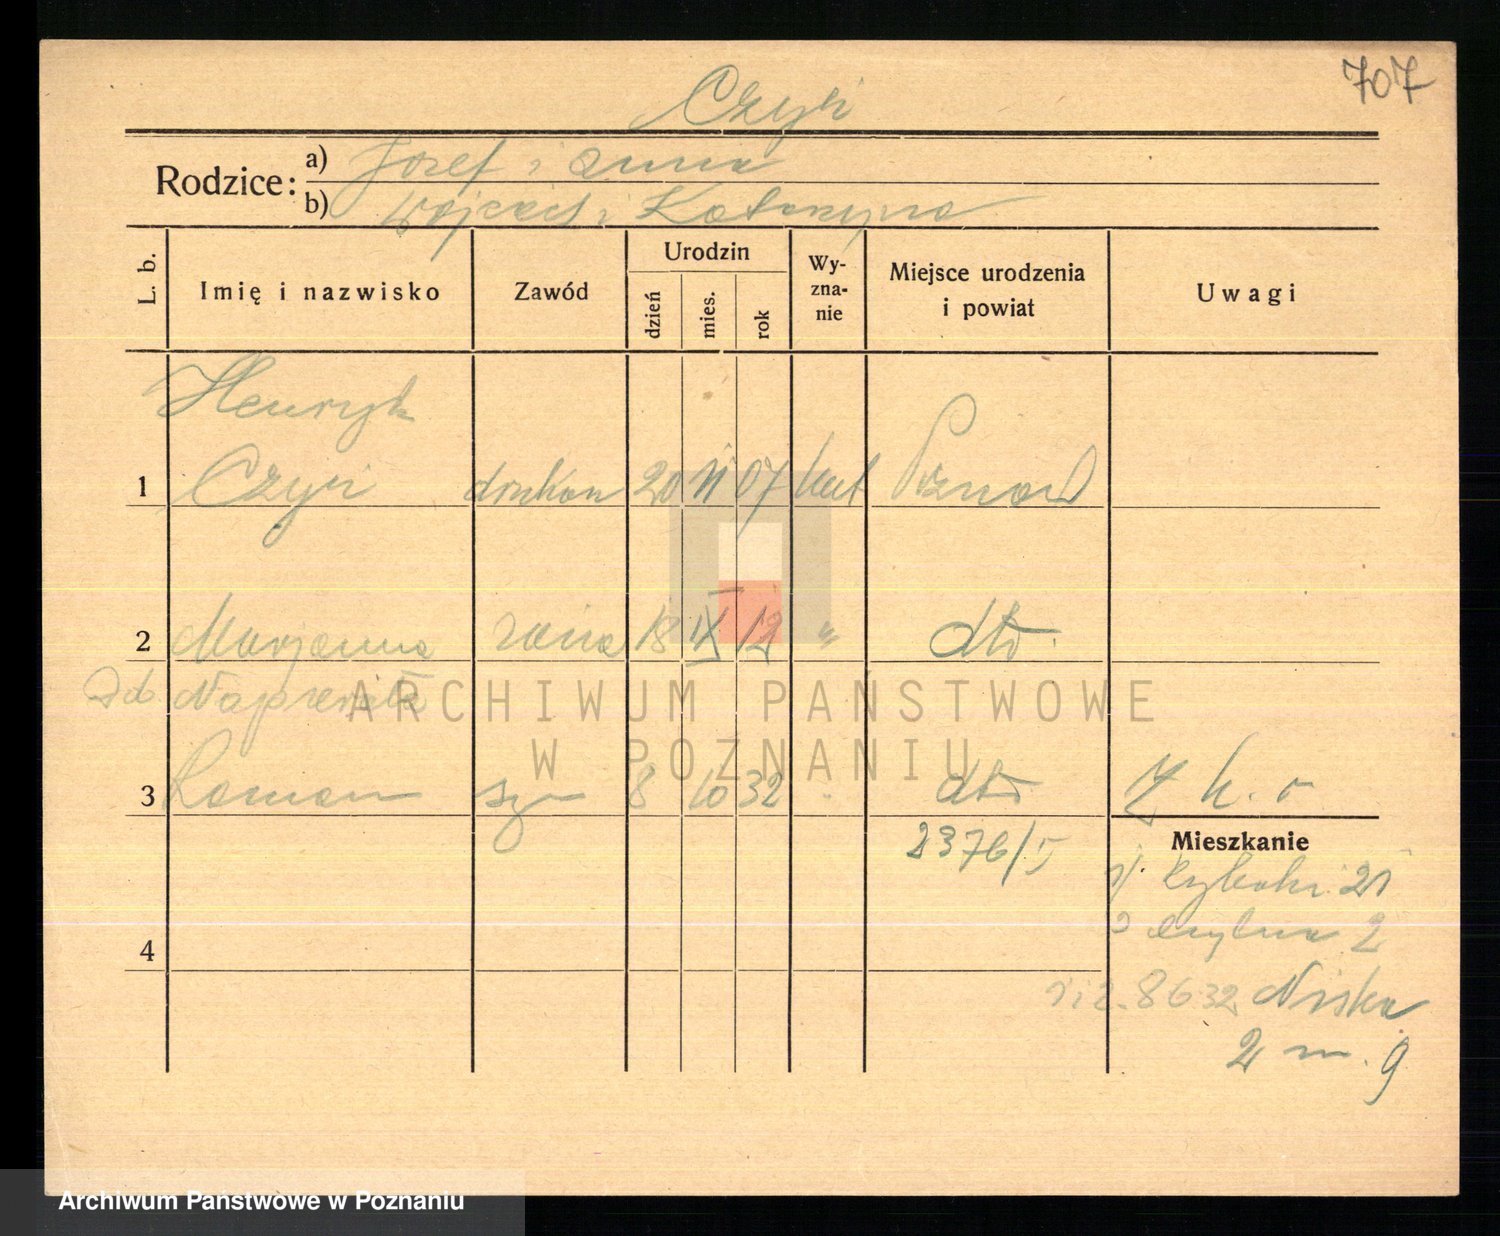 707
Czyż
Rodzice: a) Józef i Anna
b) Wojciech i Katarzyna
L. b. Imię i nazwisko Zawód Urodzin dzień mies. rok Wy-zna-nie Miejsce urodzenia i powiat Uwagi
Henryk
1 20 11 07 kat Poznań
2 Marjanna 18 IX 12 " dto
ARCHIWUM PAŃSTWOWE
W POZNANIU
3 Roman syn 8 10 32 " dto
2376/
Mieszkanie
21
2
8 6 32 Niska
2 m. 9
4
Archiwum Państwowe w Poznaniu